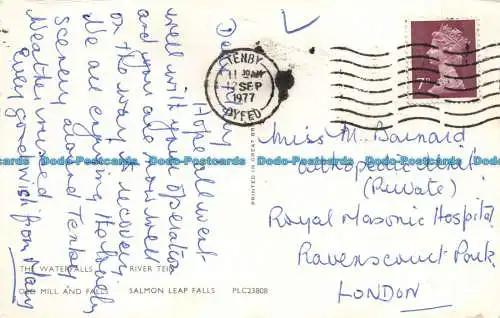 Hope all went
well with your operation
and you are now well
on the way to recovery
We are enjoying Holiday
Scenery around Tenby
Weather mixed
every good wish from Mary
TENBY
11 30AM
12 SEP
1977
DYFED
7P
Miss M. Barnard
orthopedic Unit
(Private)
Royal Masonic Hospital
Ravenscourt Park
LONDON
PRINTED IN GREAT BRITAIN
THE WATERFALLS RIVER TEIFI
OLD MILL AND FALLS SALMON LEAP FALLS PLC23808
Dodo-Postcards Dodo-Postcards Dodo-Postcards Dodo-Postcards Dodo-Postcards Dodo-Postcards